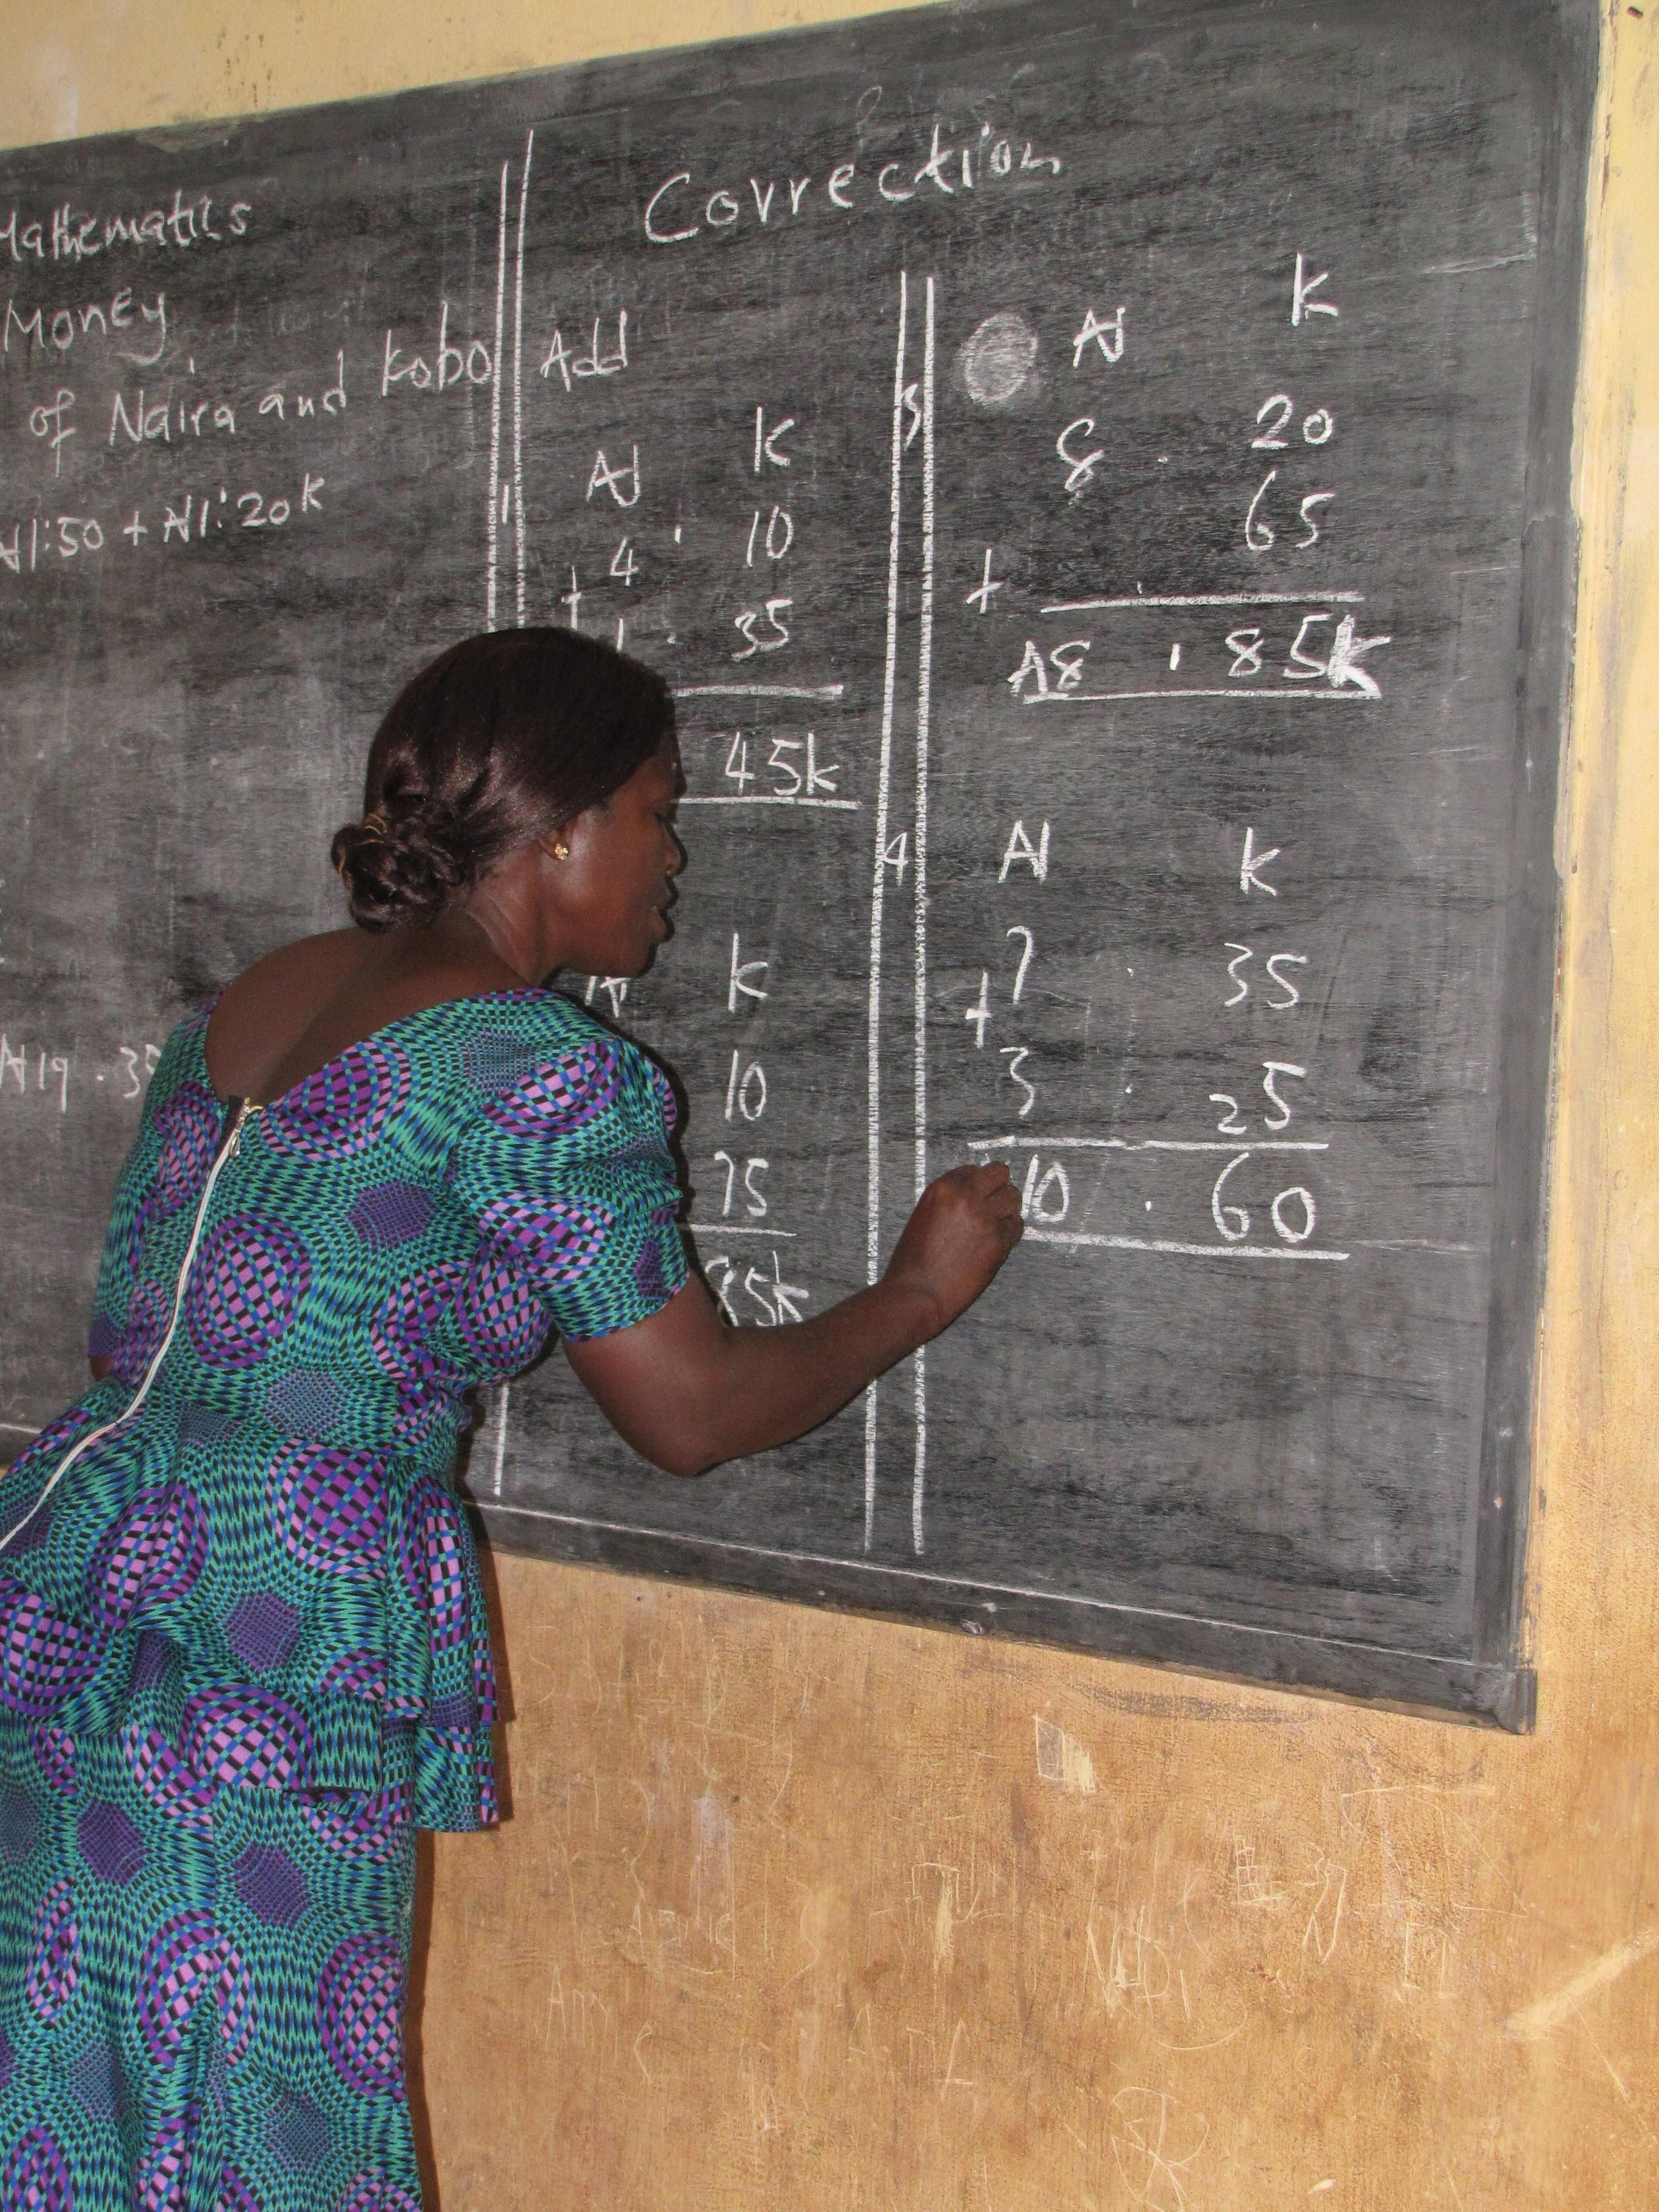 Mathematics
Money
of Naira and Kobo
₦1:50 + ₦1:20k
₦19 . 35
Correction
Add
1
₦ K
4 . 10
+
1 . 35
45k
K
10
75
85k
3
₦ K
8 . 20
65
+
₦8 . 85k
4
₦ K
7 . 35
+
3 . 25
10 . 60